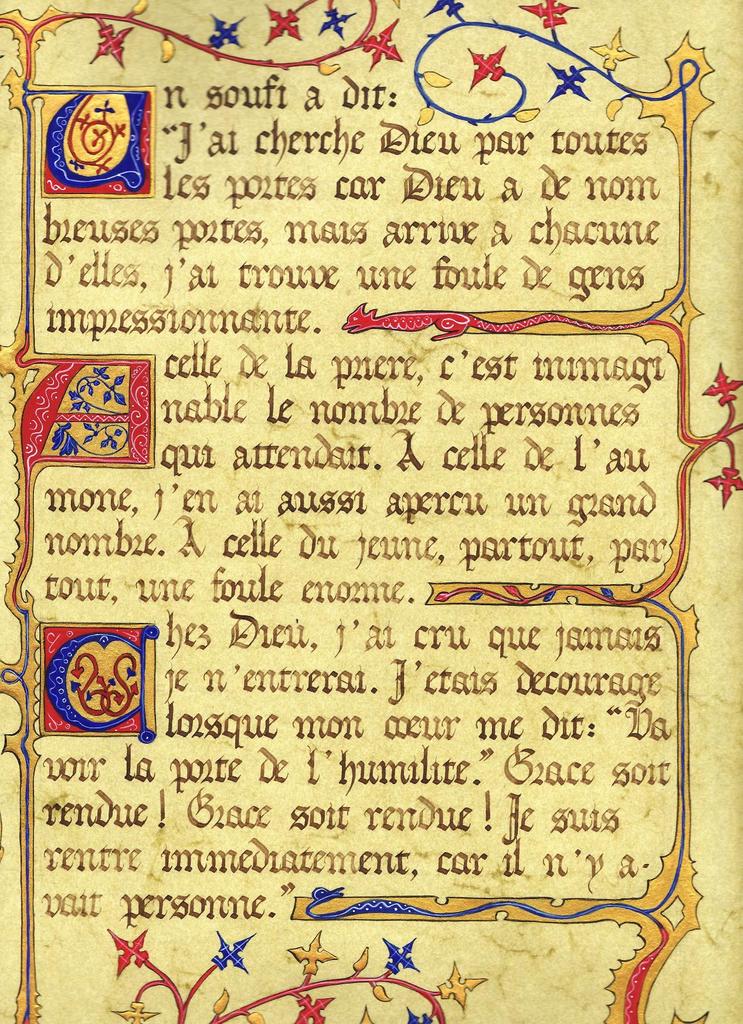 Un soufi a dit:
“J'ai cherche Dieu par toutes
les portes car Dieu a de nom
breuses portes, mais arrive a chacune
d'elles, j'ai trouve une foule de gens
impressionnante.
A celle de la priere, c'est inimagi
nable le nombre de personnes
qui attendait. A celle de l'au
mone, j'en ai aussi apercu un grand
nombre. A celle du jeune, partout, par
tout, une foule enorme.
Chez Dieu, j'ai cru que jamais
je n'entrerai. J'etais decourage
lorsque mon cœur me dit: “Va
voir la porte de l'humilite.” Grace soit
rendue! Grace soit rendue! Je suis
rentre immediatement, car il n'y a-
vait personne.”